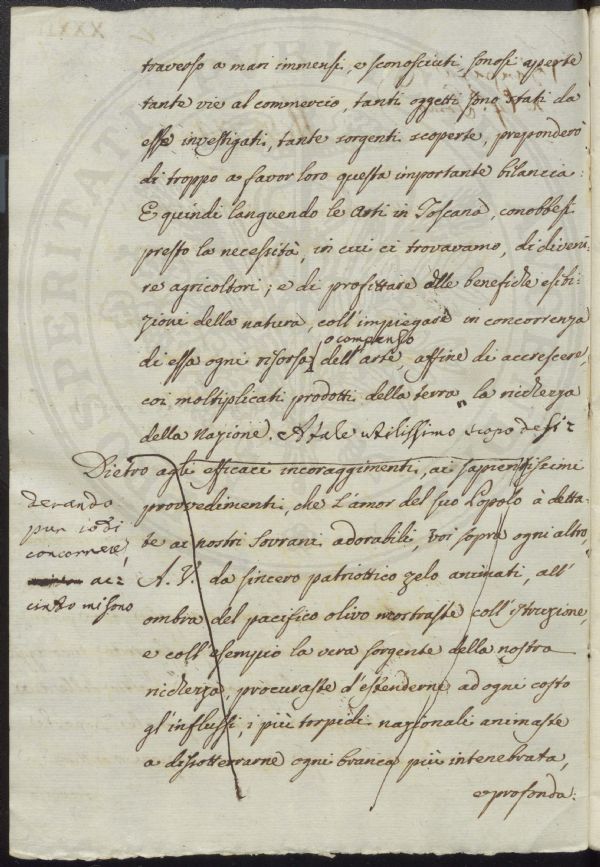 traverso a mari immensi, e sconosciuti sonosi aperte
tante vie al commercio, tanti oggetti sono stati da
esse investigati, tante sorgenti scoperte, preponderò
di troppo a favor loro questa importante bilancia:
E quindi languendo le Arti in Toscana, conobbesi
presto la necessità, in cui ci trovavamo, di diveni-
re agricoltori; e di profittare delle benefiche esibi-
zioni della natura, coll'impiegare in concorrenza
o compenso
di essa ogni risorsa dell'arte, affine di accrescere,
coi moltiplicati prodotti della terra la richezza
della Nazione. A tale utilissimo scopo desi-
derando
pur io di
concorrere,
ac-
cinto mi sono
Dietro agli efficaci incoraggimenti, ai sapientissimi
provvedimenti, che l'amor del suo Popolo à detta-
te ai nostri Sovrani adorabili, Voi sopra ogni altro,
A. V. da sincero patriottico zelo animati, all'
ombra del pacifico olivo mostraste coll'istruzione,
e coll'esempio la vera sorgente della nostra
richezza, procuraste d'estenderne ad ogni costo
gl'influssi, i più torpidi nazionali animaste
a disotterrarne ogni branca più intenebrata,
e profonda: